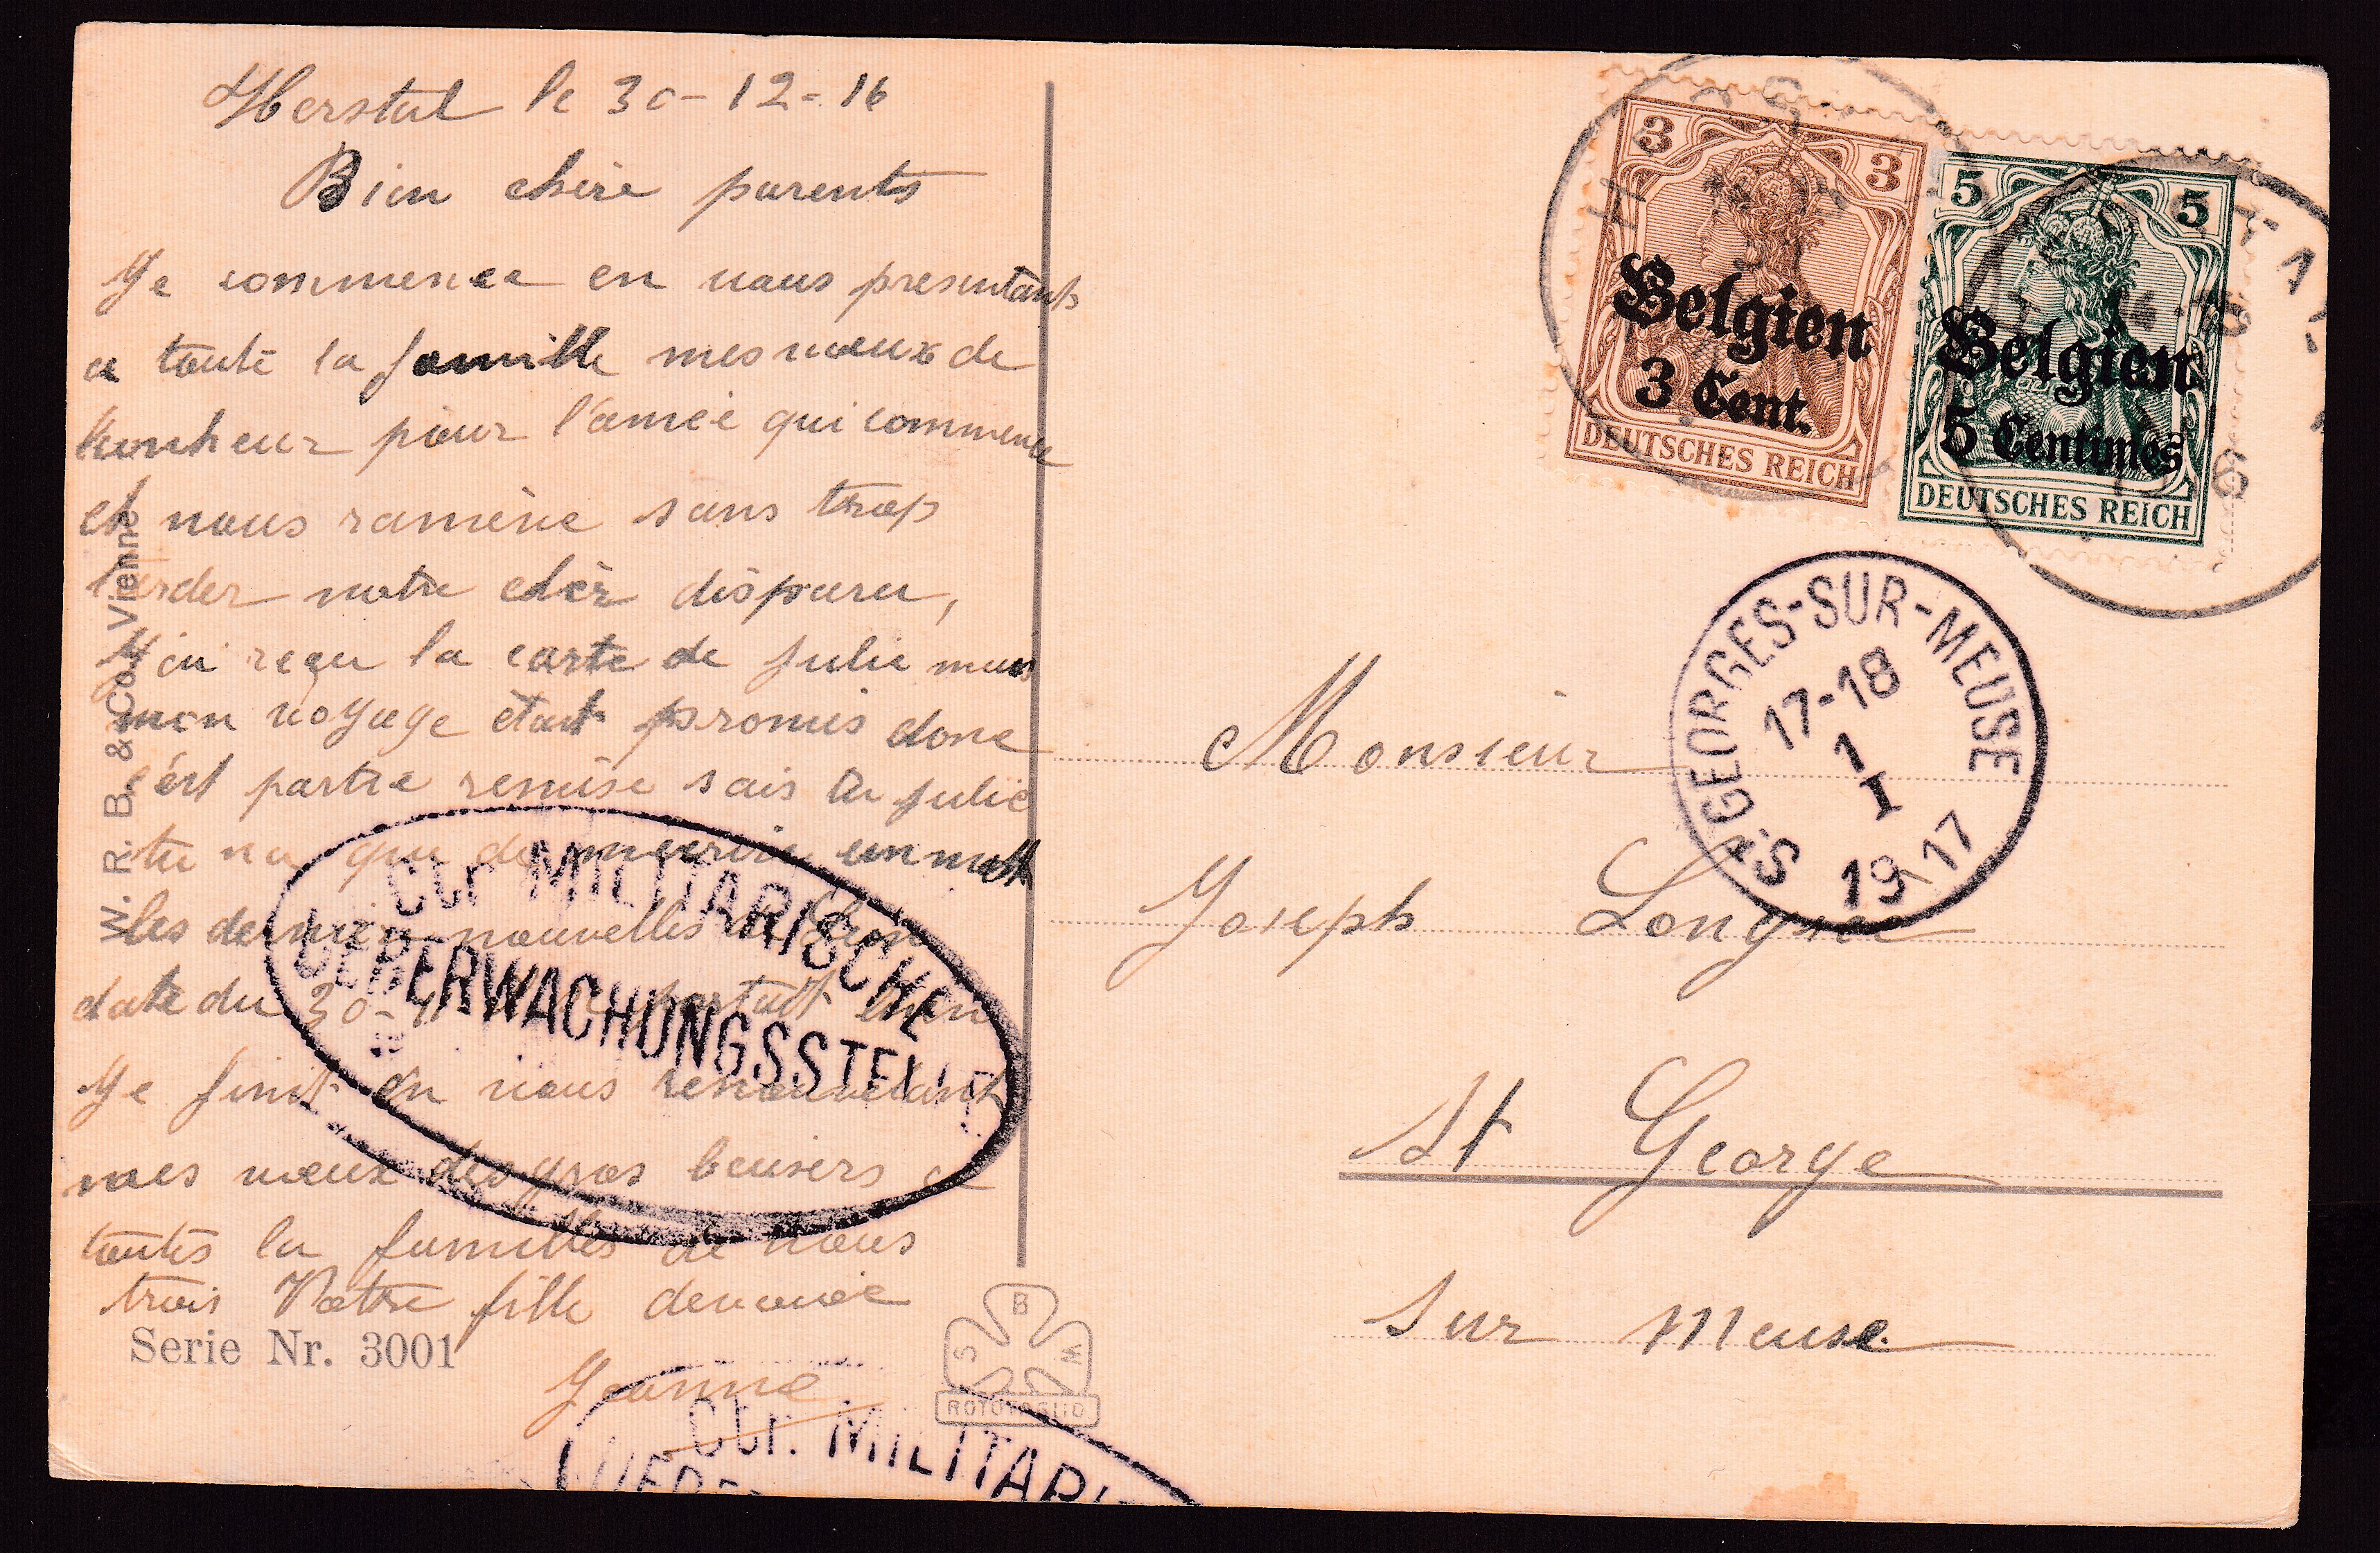 Herstal le 30-12-16
Bien chère parents
Je commence en vous presentants
a toute la famille mes vœux de
bonheur pour l'année qui commence
et nous ramène sans trop
tarder notre chèr disparu,
J'ai reçu la carte de Julie mais
mon voyage était promis donc
c'est partie remise sais tu Julie
tu na que de un mot
les dernière nouvelles de
date du 30- portait bien
Je finit en vous renouvelant
mes vœux des gros baisers a
toutes la familles de nous
trois Votre fille devouée
Jeanne
W. R. B. & Co, Vienne
Serie Nr. 3001
B
S M
ROTOVOGLIO
Ctr. MILITARISCHE
UEBERWACHUNGSSTELLE
Ctr. MILITARI
UEBE
3 3
Belgien
3 Cent.
DEUTSCHES REICH
5 5
Belgien
5 Centimes
DEUTSCHES REICH
St GEORGES-SUR-MEUSE
17-18
1
I
19 17
Monsieur
Joseph
St George
sur Meuse